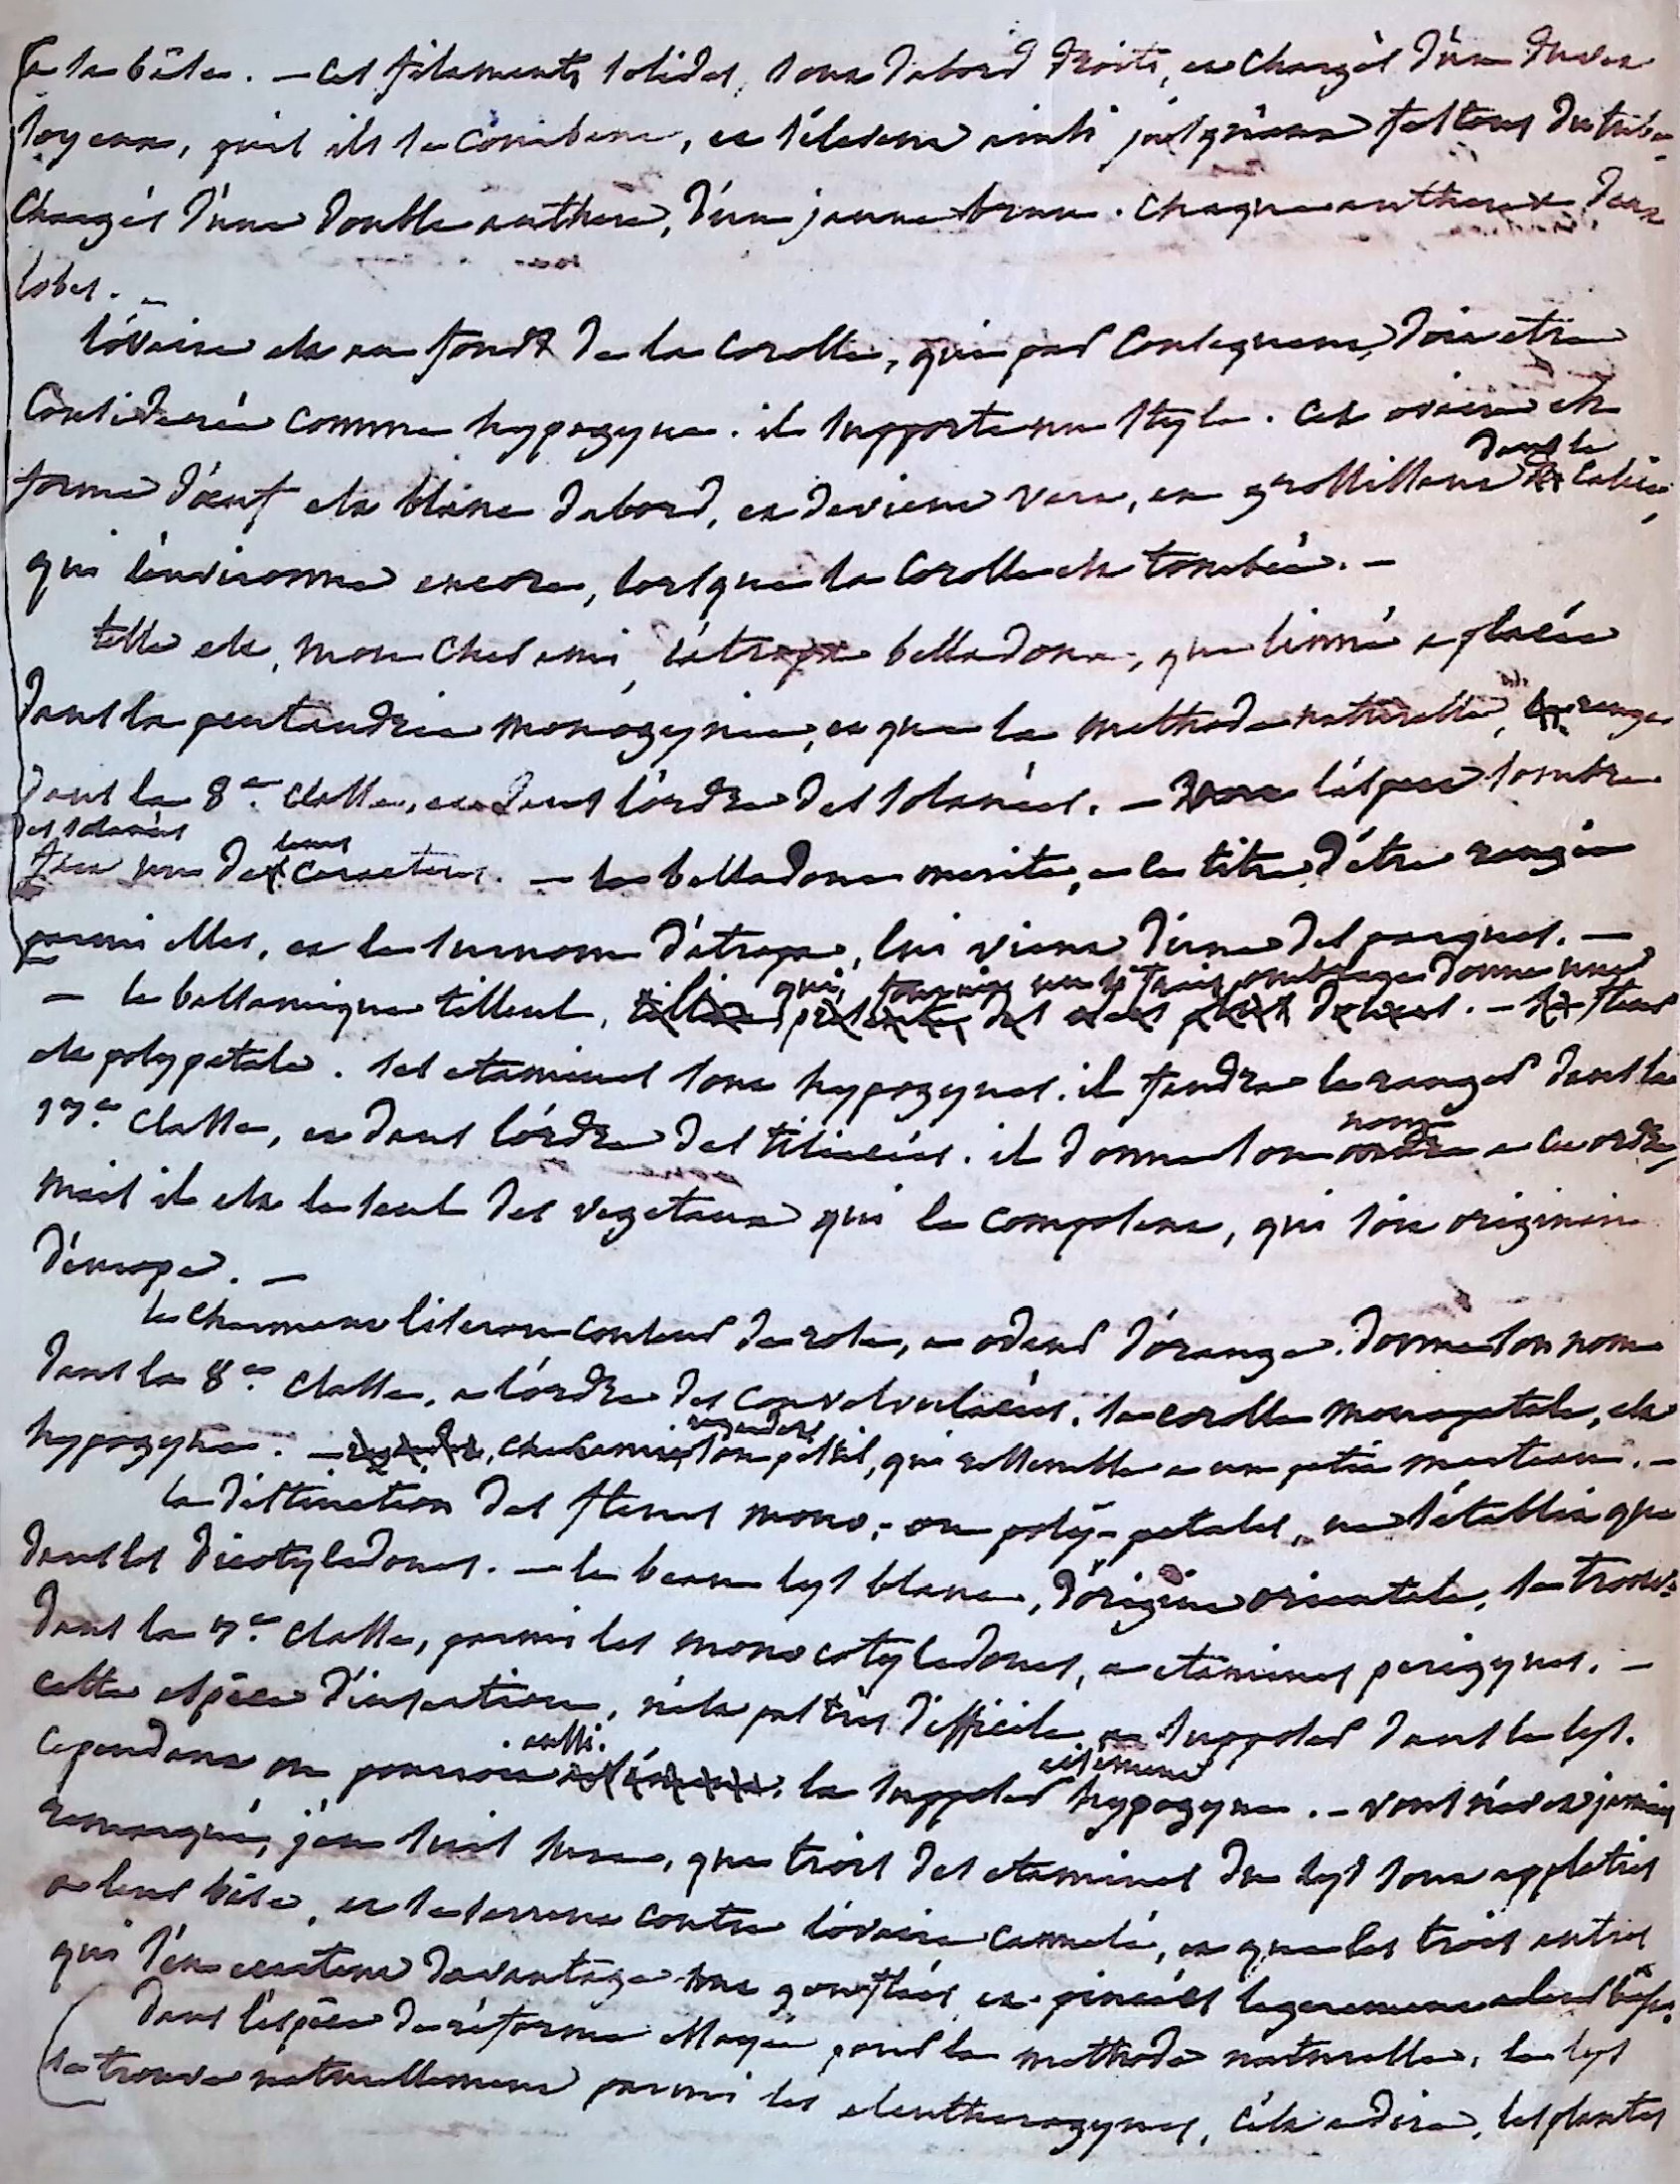 a la base. — ces filaments solides, sont dabord droits, et chargés d'un duvet
soyeux, puis ils se courbent, et s'elevent ainsi jusqu'aux festons du tube
chargés d'une double anthere, d'un jaune brun. chaque anthere a deux
lobes. —
l'ovaire est au fond de la corolle, qui par consequent, doit etre
considerée comme hypogyne. il supporte un style. cet ovaire en
forme d'oeuf est blanc dabord, et devient vert, en grossissant dans le calice,
qui l'environne encore, lorsque la corolle est tombée. —
telle est, mon cher ami, l'atropa belladona, que linné a placée
dans la pentandrie monogynie, et que la methode naturelle, range
dans la 8e. classe, et dans l'ordre des solanées. — l'aspect sombre
des solanées
fait un de leurs caracteres. — la belladone merite, a ce titre d'être rangée
parmi elles, et le surnom d'atropa, lui vient d'une des parques. —
qui, fournit un si frais ombrage donne une
— le balsamique tilleul, fleur
est polypetale. ses etamines sont hypogynes. il faudra le ranger dans la
17e. classe, et dans l'ordre des tiliacées. il donne son nom a cet ordre,
mais il est le seul des vegetaux qui le composent, qui soit originaire
d'europe. —
le charmant liseron couleur de rose, a odeur d'orange. donne son nom
dans la 8e. classe, a l'ordre des convolvulacées. sa corolle monopetale, est
hypogyne. — cher ami, regardez son pistil, qui ressemble a un petit marteau. —
la distinction des fleurs mono, ou poly-petales, ne s'établit que
dans les dicotyledones. — le beau lys blanc, d'origine orientale, se trouve
dans la 7e. classe, parmi les monocotyledones, a etamines perigynes. —
cette espèce d'insertion, n'est pas très difficile a supposer dans le lys.
cependant on pourroit aussi aisément le supposer hypogyne. — vous n'avez jamais
remarqué, j'en suis sure, que trois des etamines du lys sont applaties
a leur base, et se serrent contre l'ovaire cannelé, et que les trois autres
qui s'en ecartent davantage sont gonflées et pincées legerement a leur base.
dans l'espèce de réforme essayée pour la methode naturelle, le lys
se trouve naturellement parmi les eleutherogynes, c'est a dire, les plantes